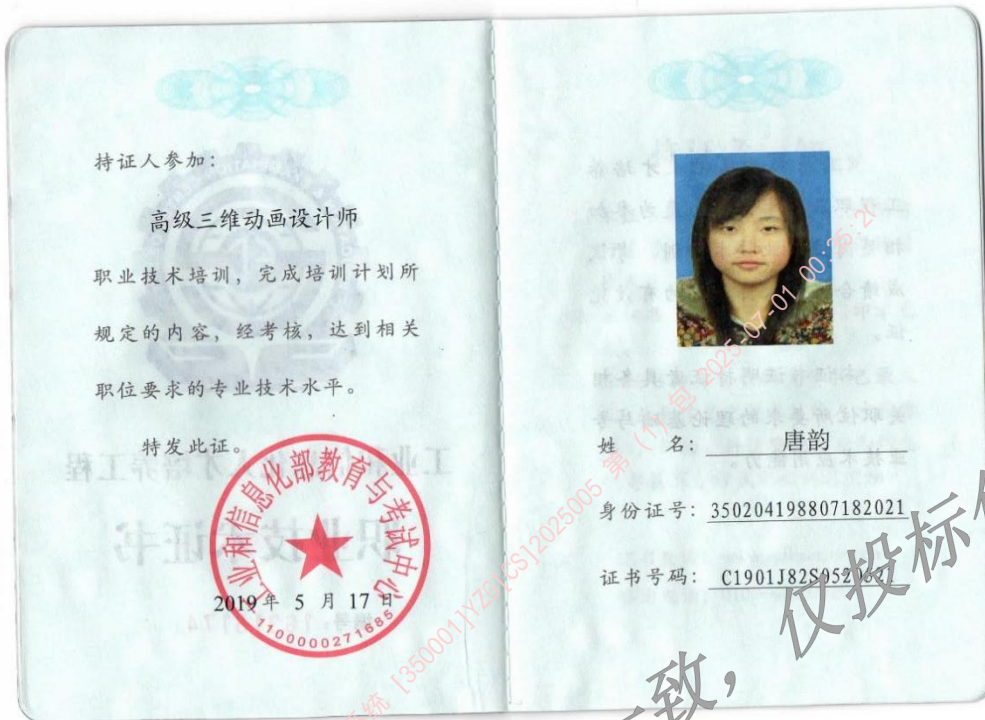 持证人参加：
高级三维动画设计师
职业技术培训，完成培训计划所
规定的内容，经考核，达到相关
职位要求的专业技术水平。
特发此证。
工业和信息化部教育与考试中心
2019年 5 月 17 日
1100000271685
姓 名：唐韵
身份证号：350204198807182021
证书号码：
系统 [350001]YZG[CS]2025005 第（1）包 2025-07-01 00:35:2
致，仅投标